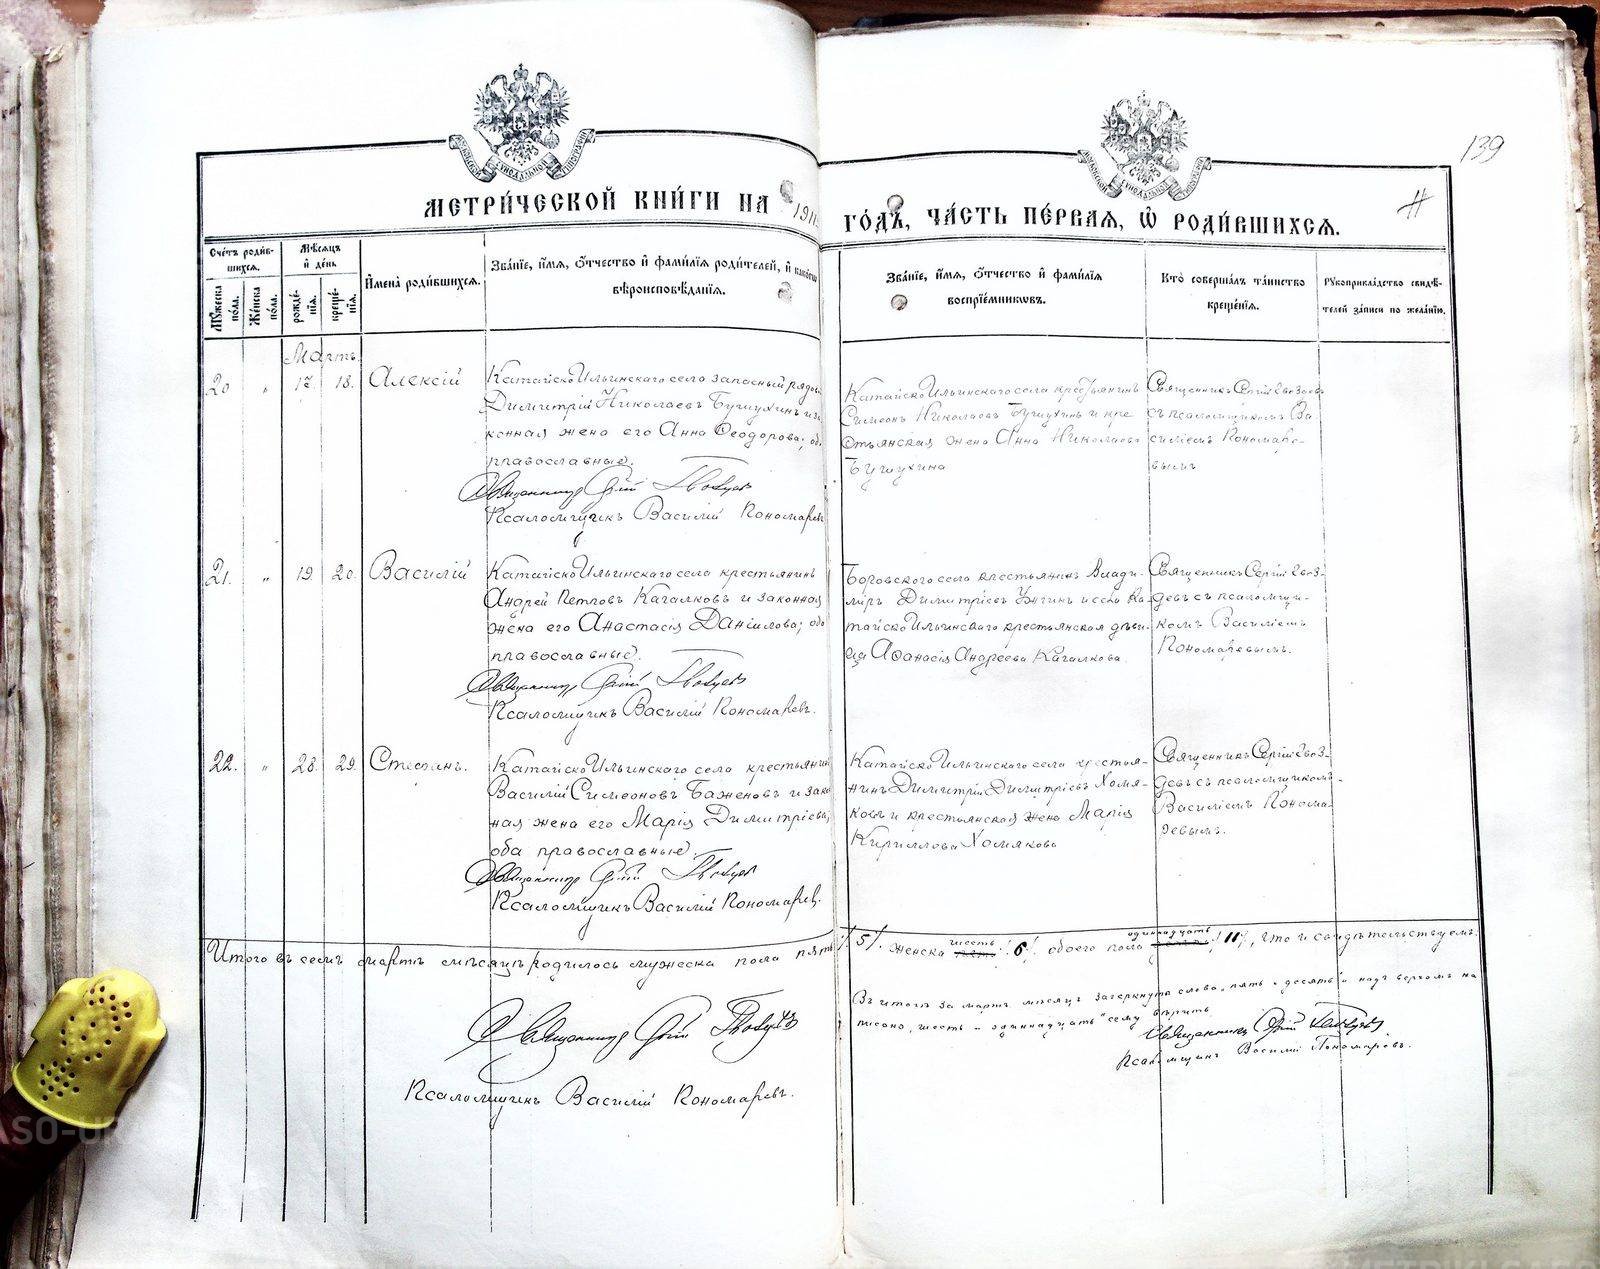 139
МЕТРИ́ЧЕСКОЙ КНИ́ГИ НА 191
ГО́ДЪ, ЧА́СТЬ ПЕ́РВАЯ, Ѡ РОДИ́ВШИХСЯ.
Сче́тъ роди́в-
шихся.
Му́жеска по́ла.
Же́нска по́ла.
Мѣ́сяцъ
и де́нь
рожде́-
нїя.
креще́-
нїя.
Имена̀ роди́вшихся.
Зва́нїе, и́мя, о́тчество и фами́лїя роди́телей, и како́гѡ
вѣроисповѣ́данїя.
Зва́нїе, и́мя, о́тчество и фами́лїя
воспрїе́мникѡвъ.
Кто̀ соверша́лъ та́инство
креще́нїя.
Рукоприкла́дство свидѣ́-
телей за́писи по жела́нїю.
Мартъ
20 " 17. 18. Алексій
Катайско Ильинскаго села запасный рядов
Димитрій Николаевъ Бушухинъ и за
конная жена его Анна Феодорова; об
православные.
Священникъ Сергій Гвоздев
Псаломщикъ Василій Пономаревъ
Катайско Ильинскаго села крестьянинъ
Симеонъ Николаевъ Бушухинъ и кре
стьянская жена Анна Николаева
Бушухина
Священникъ Сергій Гвоздев
съ псаломщикомъ Ва
силіемъ Пономаре-
вымъ
21. " 19. 20. Василій
Катайско Ильинскаго села крестьянинъ
Андрей Петровъ Кагалковъ и законная
жена его Анастасія Даніилова; оба
православные.
Священникъ Сергій Гвоздев
Псаломщикъ Василій Пономаревъ.
Боровского села крестьянинъ Влади-
міръ Димитріев и села Ка-
тайско Ильинскаго крестьянская дѣви-
ца Аѳанасія Андреева Кагалкова.
Священникъ Сергій Гвоз-
девъ съ псаломщи-
комъ Василіемъ
Пономаревымъ.
22. " 28. 29. Степанъ.
Катайско Ильинскаго села крестьянин
Василій Симеоновъ Баженовъ и закон
ная жена его Марія Димитріева;
оба православные.
Священникъ Сергій Гвоздев
Псаломщикъ Василій Пономарев.
Катайско Ильинскаго села крестья-
нинъ Димитрій Димитріевъ Хомя-
ковъ и крестьянская жена Марія
Кириллова Хомякова
Священникъ Сергій Гвоз-
девъ съ псаломщикомъ
Василіемъ Понома-
ревымъ.
Итого въ семъ мартѣ мѣсяцѣ родилось мужеска пола пять
/5/. женска шесть /6/ обоего пола одиннадцать /11/, что и свидѣтельствуемъ.
Священникъ Сергій Гвоздевъ
Псаломщикъ Василій Пономаревъ.
Въ итогѣ за мартъ мѣсяцъ зачеркнуты слова „пять" и „десять" и надъ верхомъ на
писано „шесть" и „одиннадцать" сему вѣрить
Священникъ Сергій Гвоздевъ.
Псаломщикъ Василій Пономаревъ.